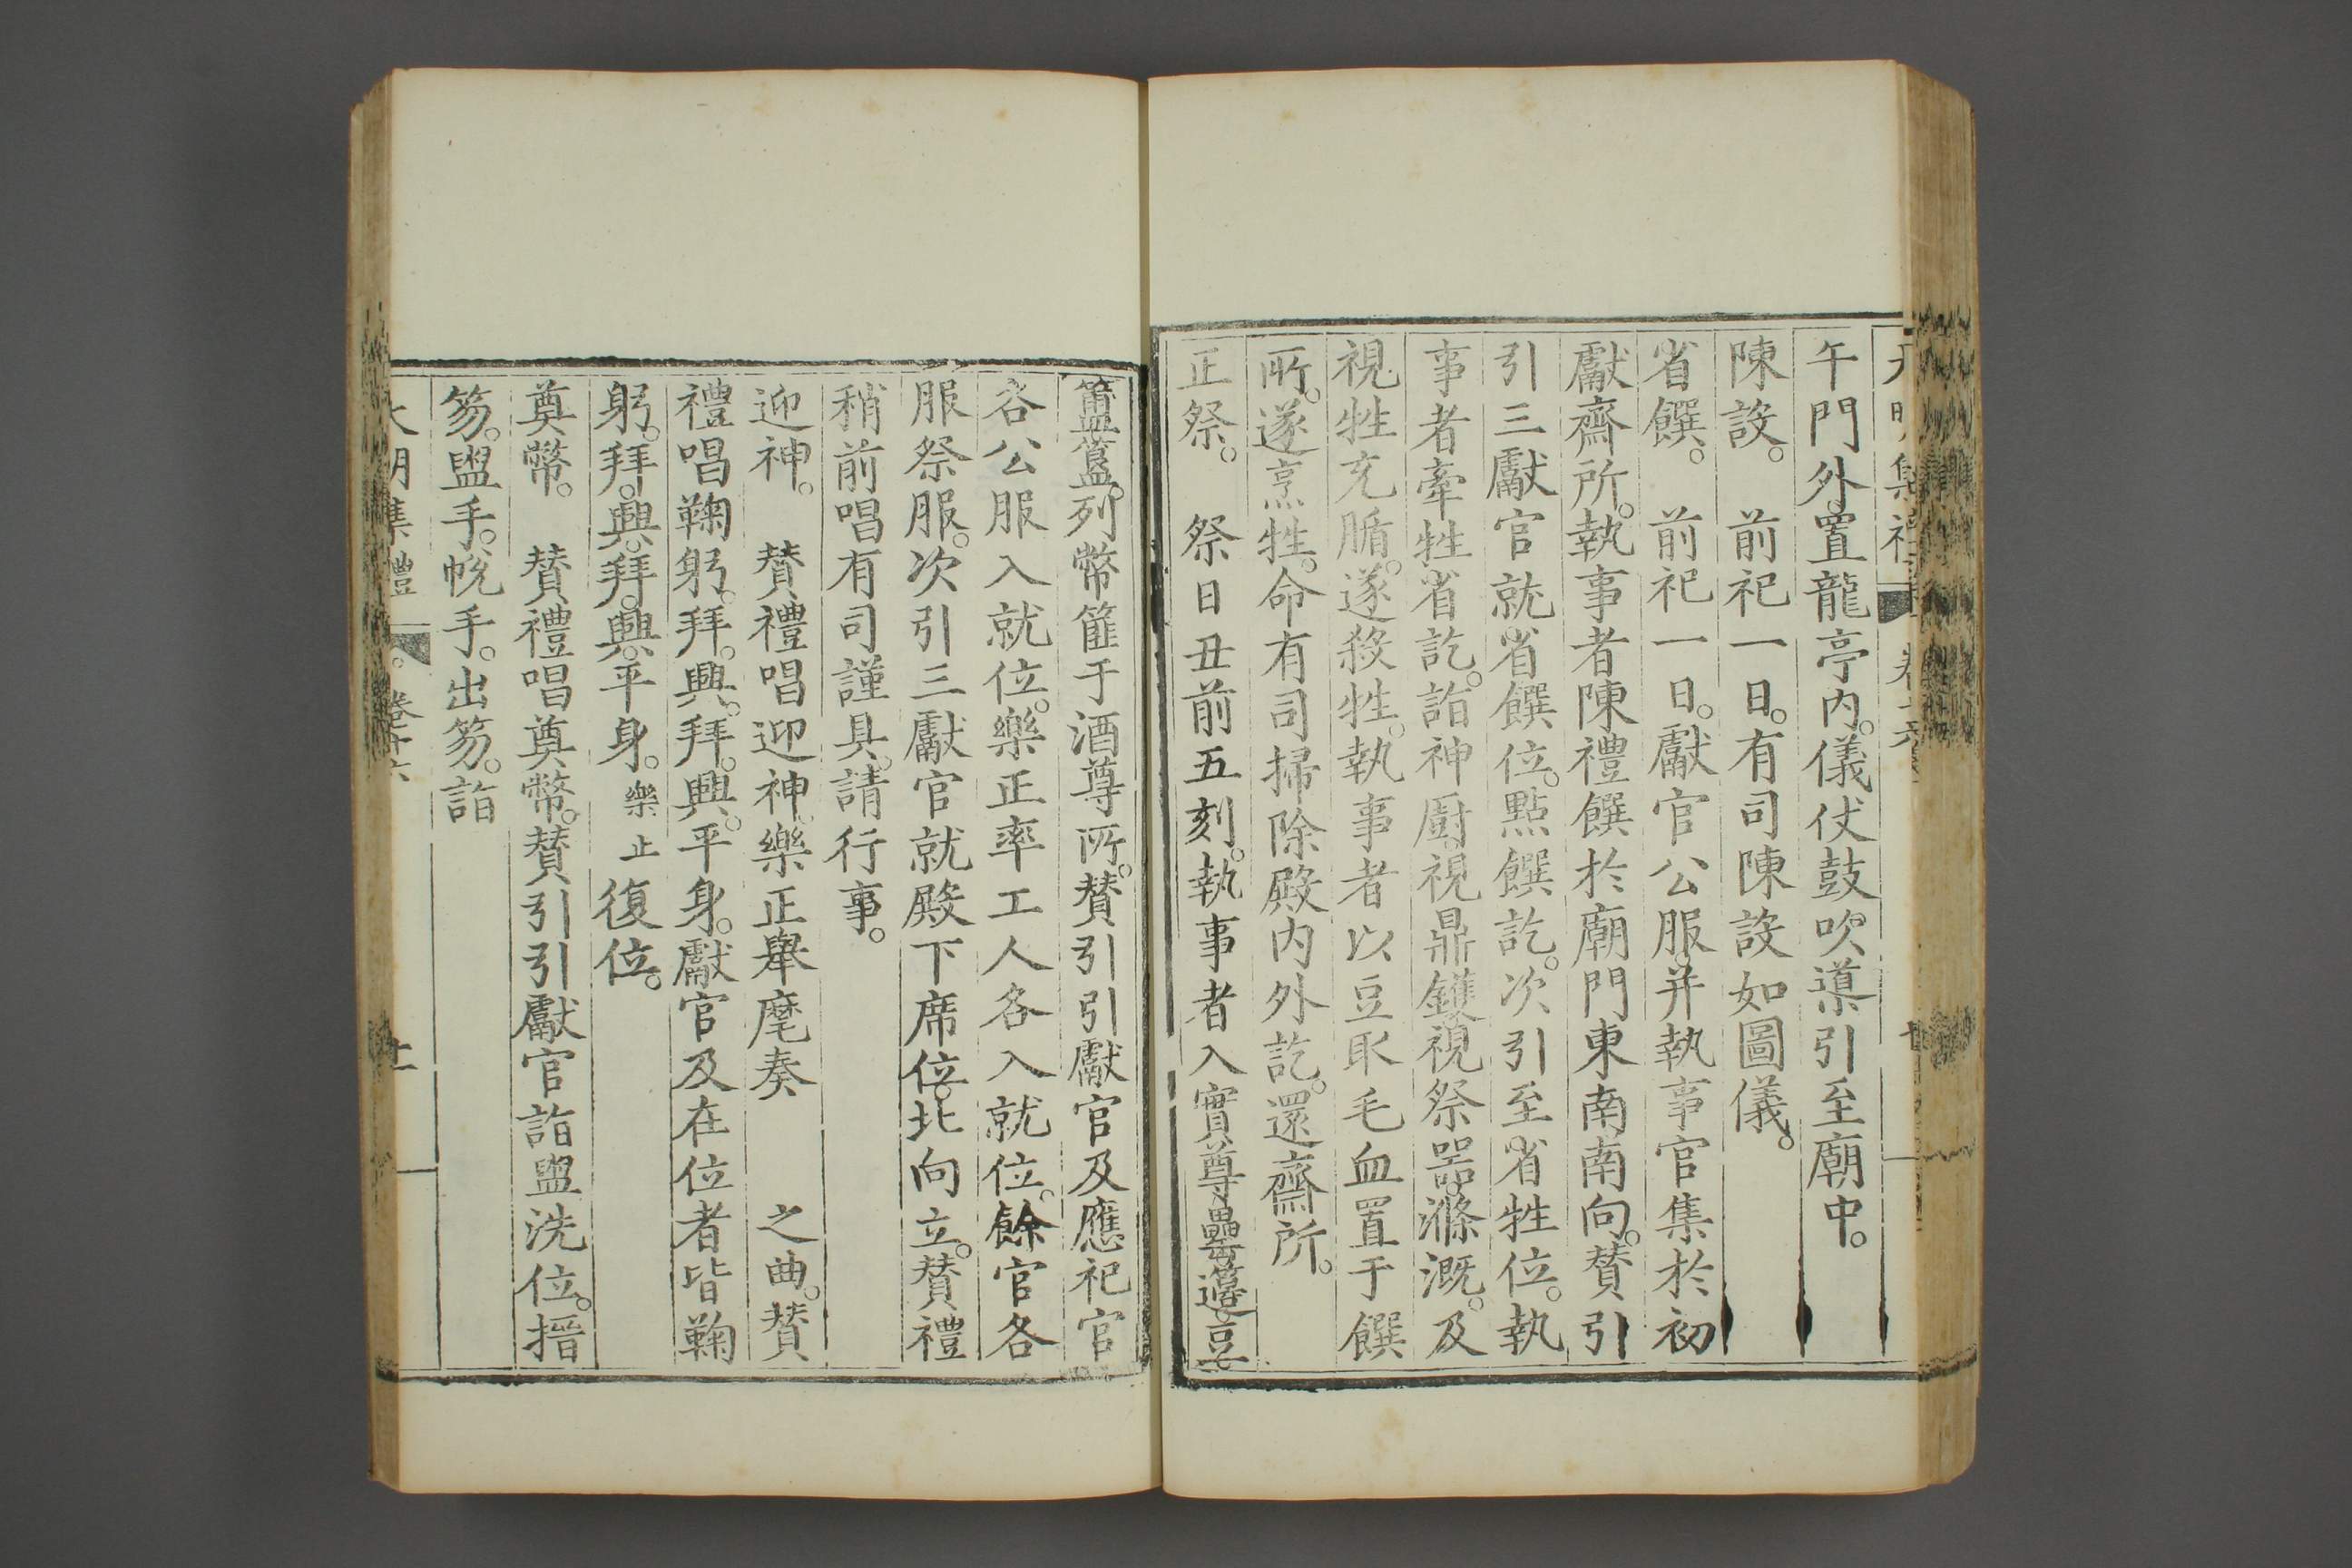 午門外置龍亭內。儀仗鼓吹導引至廟中。
陳設。　前祀一日。有司陳設如圖儀。
省饌。　前祀一日。獻官公服。并執事官集於初
獻齋所。執事者陳禮饌於廟門東南南向。贊引
引三獻官就省饌位。點饌訖。次引至省牲位。執
事者牽牲省訖。詣神廚。視鼎鑊。視祭器。滌溉。及
視牲充腯。遂殺牲。執事者以豆取毛血置于饌
所。遂烹牲。命有司掃除殿內外訖。還齋所。
正祭。　祭日丑前五刻。執事者入實尊罍籩豆
簠簋。列幣篚于酒尊所。贊引引獻官及應祀官
各公服入就位。樂正率工人各入就位。餘官各
服祭服。次引三獻官就殿下席位。北向立。贊禮
稍前唱有司謹具。請行事。
迎神。　贊禮唱迎神。樂正舉麾奏　　之曲。贊
禮唱鞠躬。拜。興。拜。興。平身。獻官及在位者皆鞠
躬。拜。興。拜。興。平身。樂止復位。
奠幣。　贊禮唱奠幣。贊引引獻官詣盥洗位。搢
笏。盥手。帨手。出笏。詣
大明集禮　卷十六